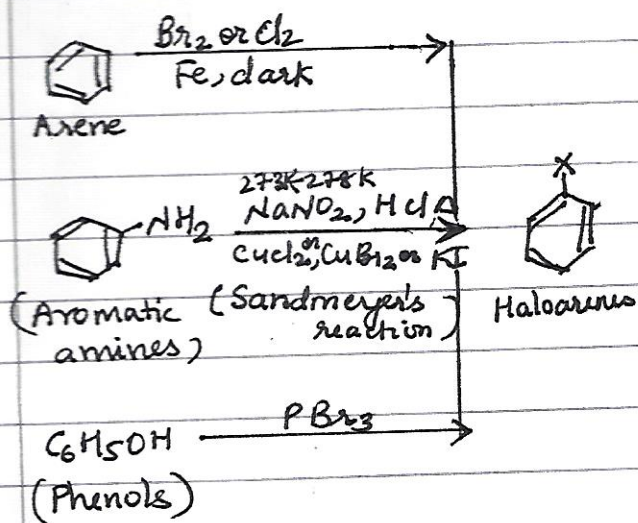 Br2 or Cl2
Fe, dark
Arene
X
273K-278K
NaNO2, HCl, Δ
NH2
CuCl2 or, CuBr2 or KI
(Aromatic amines)
(Sandmeyer's reaction)
Haloarenes
PBr3
C6H5OH
(Phenols)